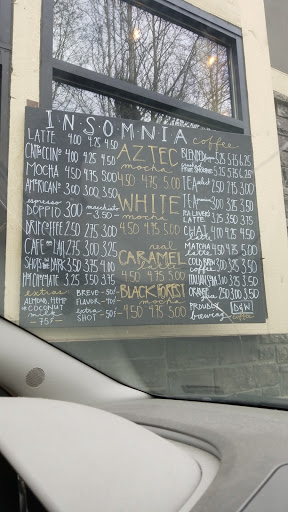 INSOMNIA coffee
LATTE 4.00 4.25 4.50
4.00 4.25 4.50
MOCHA 4.50 4.75 5.00
AMERICANO 3.00 3.00 3.50
espresso
DOPPIO 3.00 macchiato -3.50-
2.50 2.75 3.00
CAFE au LAIT 2.75 3.00 3.25
SHOTS in the DARK 3.50 3.75 4.00
3.25 3.50
extras
ALMOND, HEMP
COCONUT
milk
-75¢-
BREVE -50¢
FLAVOR -40¢
extra
SHOT -80¢
AZTEC
mocha
4.50 4.75 5.00
WHITE
mocha
4.50 4.75 5.00
real
CARAMEL
4.50 4.75 5.00
BLACK FOREST
mocha
4.50 4.75 5.00
BLENDED 5.25 5.75 6.25
FRUIT SMOOTHIE 5.25 5.75 6.25
TEA 2.50 2.75 3.00
TEA 3.00
ITALIAN
3.25 3.50 3.75
LATTE
CHAI
latte 4.00 4.25 4.50
MATCHA
latte 4.50 4.75 5.00
COLD BREW
coffee 3.00 3.50
ITALIAN SODA 3.00 3.50
ORANGE
juice 2.50 3.00 3.50
PROUDLY
brewing
coffee